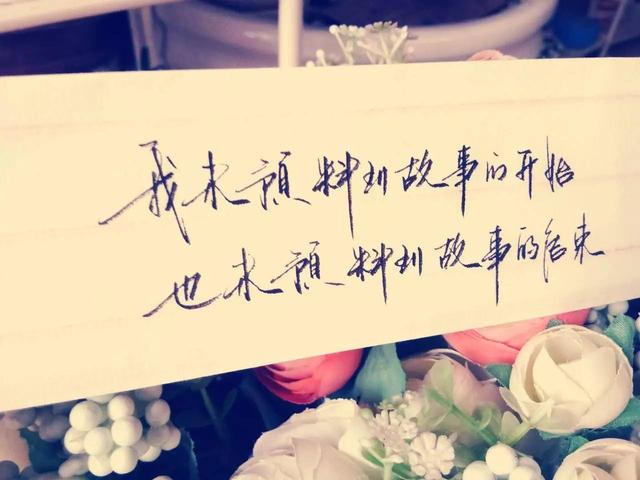 我未預料到故事的开始
也未預料到故事的结束